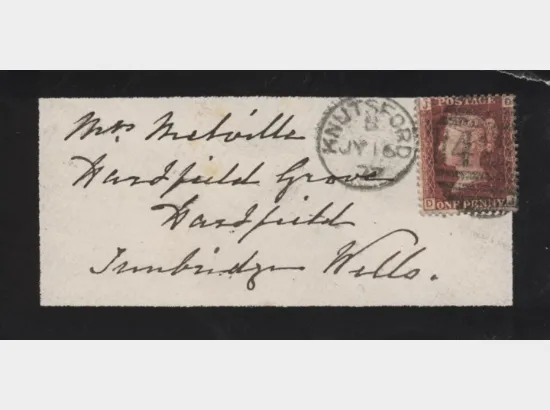 Mrs Melville
Hardfield Grove
Hardfield
Tunbridge Wells.
KNUTSFORD
B
JY 16
J POSTAGE D
4
D ONE PENNY J